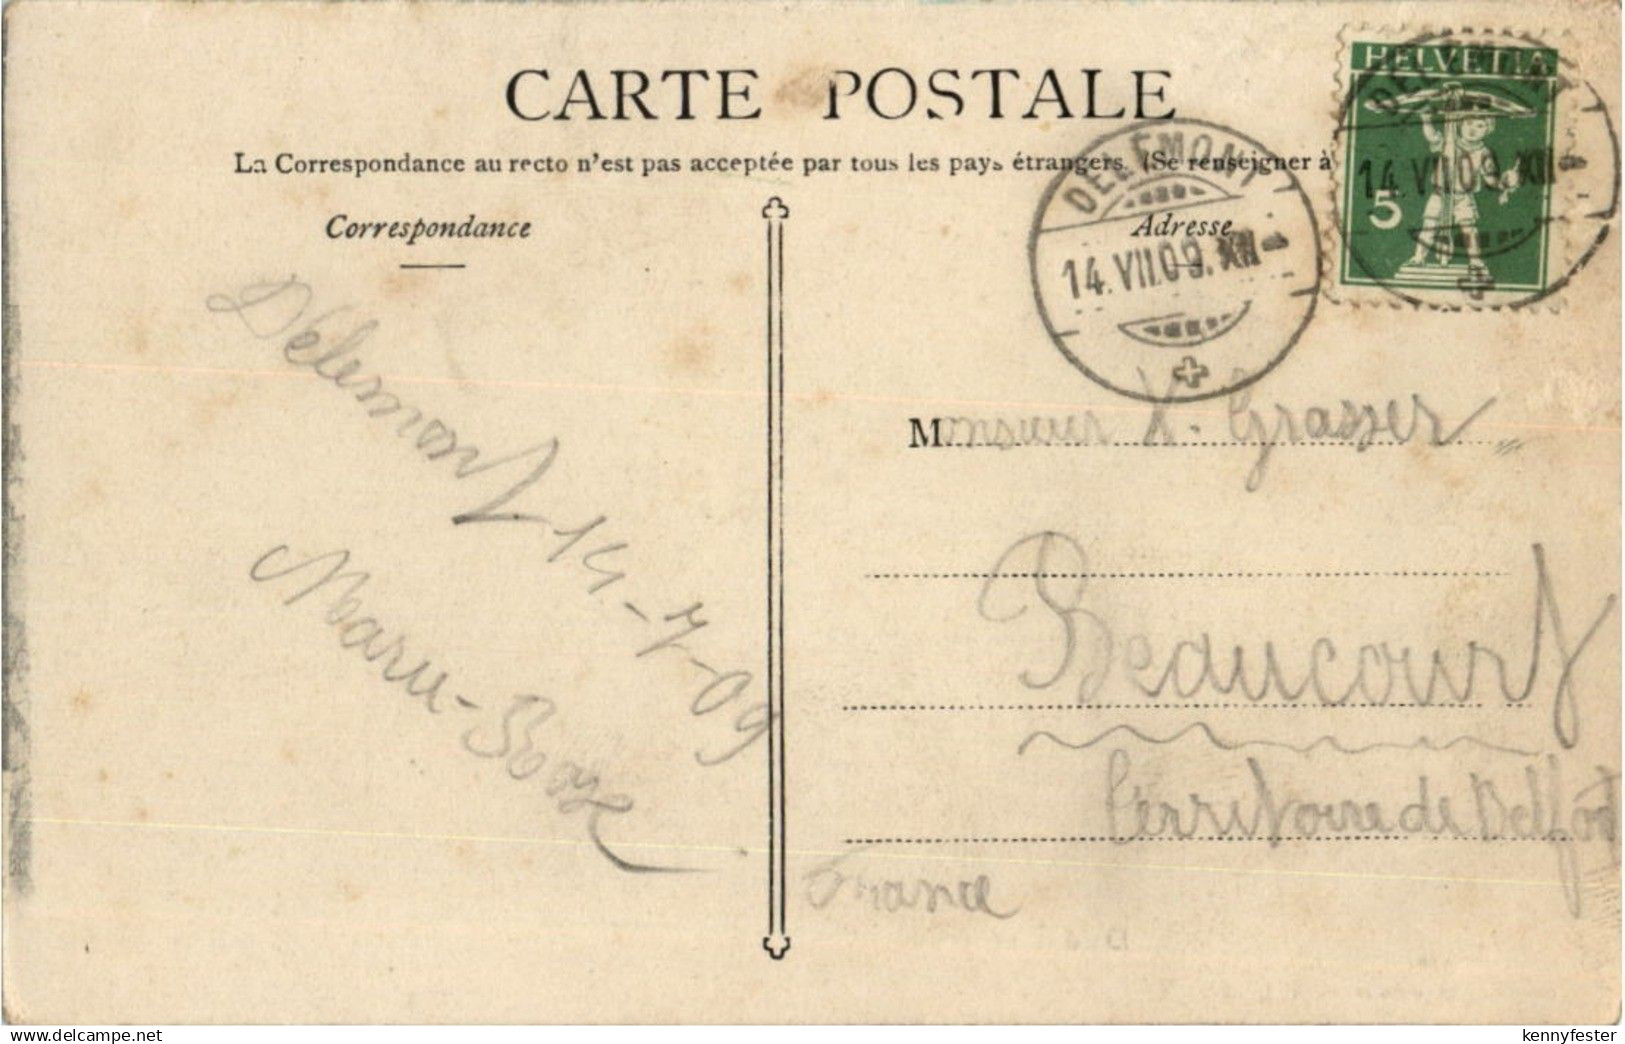 HELVETIA
5
DELÉMONT
14.VII.09.XII
CARTE POSTALE
La Correspondance au recto n'est pas acceptée par tous les pays étrangers. (Se renseigner à
DELÉMONT
14.VII.09.XII
Correspondance
Adresse
Délemont 14-7-09
Marie-Rose
Monsieur X. Grasser
Beaucourt
Territoire de Belfort
France
www.delcampe.net
kennyfester